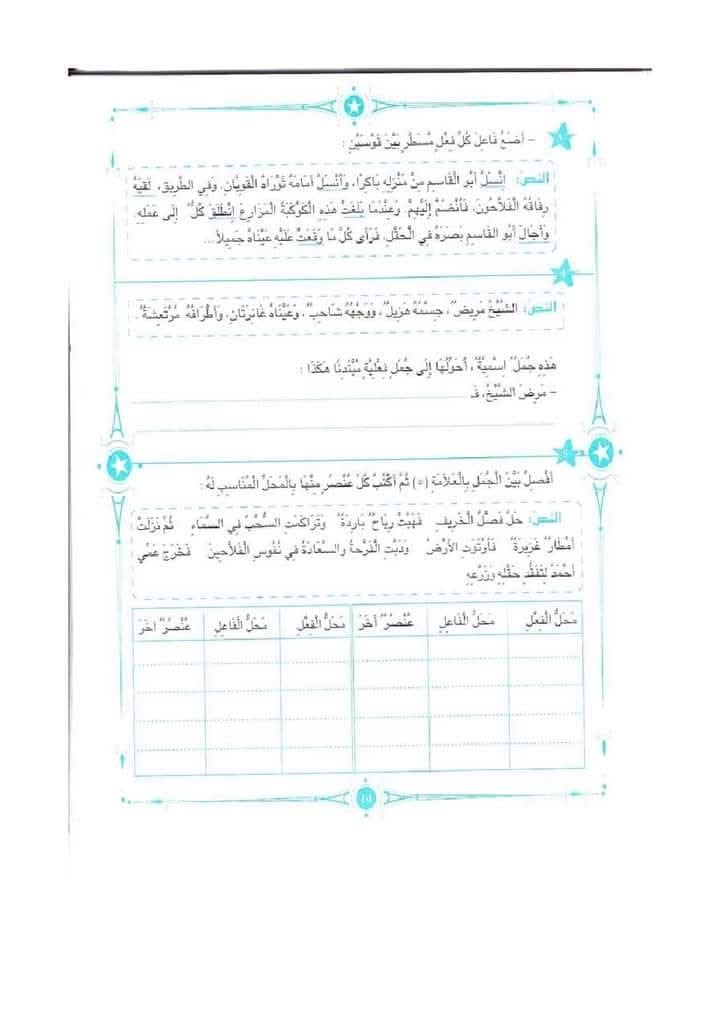 - أَضَعُ فَاعِلَ كُلِّ فِعْلٍ مُسَطَّرٍ بَيْنَ قَوْسَيْنِ :
النص: اِنْسَلَّ أَبُو القَاسِمِ مِنْ مَنْزِلِهِ بَاكِرًا، وَانْسَلَّ أَمَامَهُ ثَوْرَاهُ الْقَوِيَّانِ، وَفِي الطَّرِيقِ، لَقِيَهُ
رِفَاقُهُ الْفَلاَّحُونَ، فَانْضَمَّ إِلَيْهِمْ. وَعِنْدَمَا بَلَغَتْ هَذِهِ الْكَوْكَبَةُ الْمَزَارِعَ اِنْطَلَقَ كُلٌّ إِلَى عَمَلِهِ.
وَأَجَالَ أَبُو القَاسِمِ بَصَرَهُ فِي الْحَقْلِ، فَرَأَى كُلَّ مَا وَقَعَتْ عَلَيْهِ عَيْنَاهُ جَمِيلاً...
4
النص: الشَّيْخُ مَرِيضٌ، جِسْمُهُ هَزِيلٌ، وَوَجْهُهُ شَاحِبٌ، وَعَيْنَاهُ غَائِرَتَانِ، وَأَطْرَافُهُ مُرْتَعِشَةٌ.
هَذِهِ جُمَلٌ اِسْمِيَّةٌ، أُحَوِّلُهَا إِلَى جُمَلٍ فِعْلِيَّةٍ مُبْتَدِئًا هَكَذَا :
- مَرِضَ الشَّيْخُ، فَـ
5
أَفْصِلُ بَيْنَ الْجُمَلِ بِالْعَلاَمَةِ (=) ثُمَّ أَكْتُبُ كُلَّ عُنْصُرٍ مِنْهَا بِالْمَحَلِّ الْمُنَاسِبِ لَهُ :
النص: حَلَّ فَصْلُ الْخَرِيفِ فَهَبَّتْ رِيَاحٌ بَارِدَةٌ وَتَرَاكَمَتِ السُّحُبُ فِي السَّمَاءِ ثُمَّ نَزَلَتْ
أَمْطَارٌ غَزِيرَةٌ فَارْتَوَتِ الأَرْضُ وَدَبَّتِ الْفَرْحَةُ وَالسَّعَادَةُ فِي نُفُوسِ الْفَلاَّحِينَ فَخَرَجَ عَمِّي
أَحْمَدُ لِتَفَقُّدِ حَقْلِهِ وَزَرْعِهِ
مَحَلُّ الْفِعْلِ مَحَلُّ الْفَاعِلِ عُنْصُرٌ آخَرُ مَحَلُّ الْفِعْلِ مَحَلُّ الْفَاعِلِ عُنْصُرٌ آخَرُ